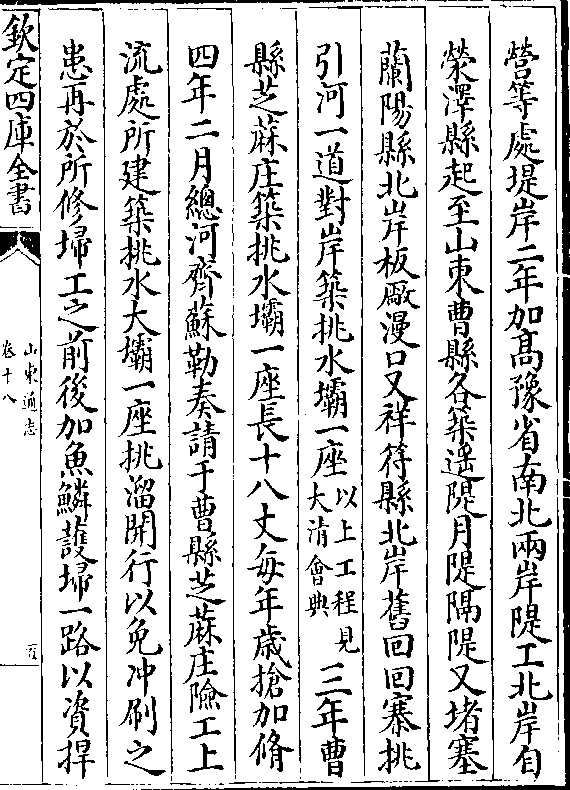 營等處堤岸二年加髙豫省南北兩岸隄工北岸自
滎澤縣起至山東曹縣各築遥隄月隄隔隄又堵塞
蘭陽縣北岸板厰漫口又祥符縣北岸舊回回寨挑
引河一道對岸築挑水壩一座以上工程見大清會典三年曹
縣芝蔴庄築挑水壩一座長十八丈每年歳搶加脩
四年二月總河齊蘇勒奏請于曹縣芝蔴庄險工上
流處所建築挑水大壩一座挑溜開行以免冲刷之
患再於所修埽工之前後加魚鱗護埽一路以資捍
欽定四庫全書
山東通志
卷十八